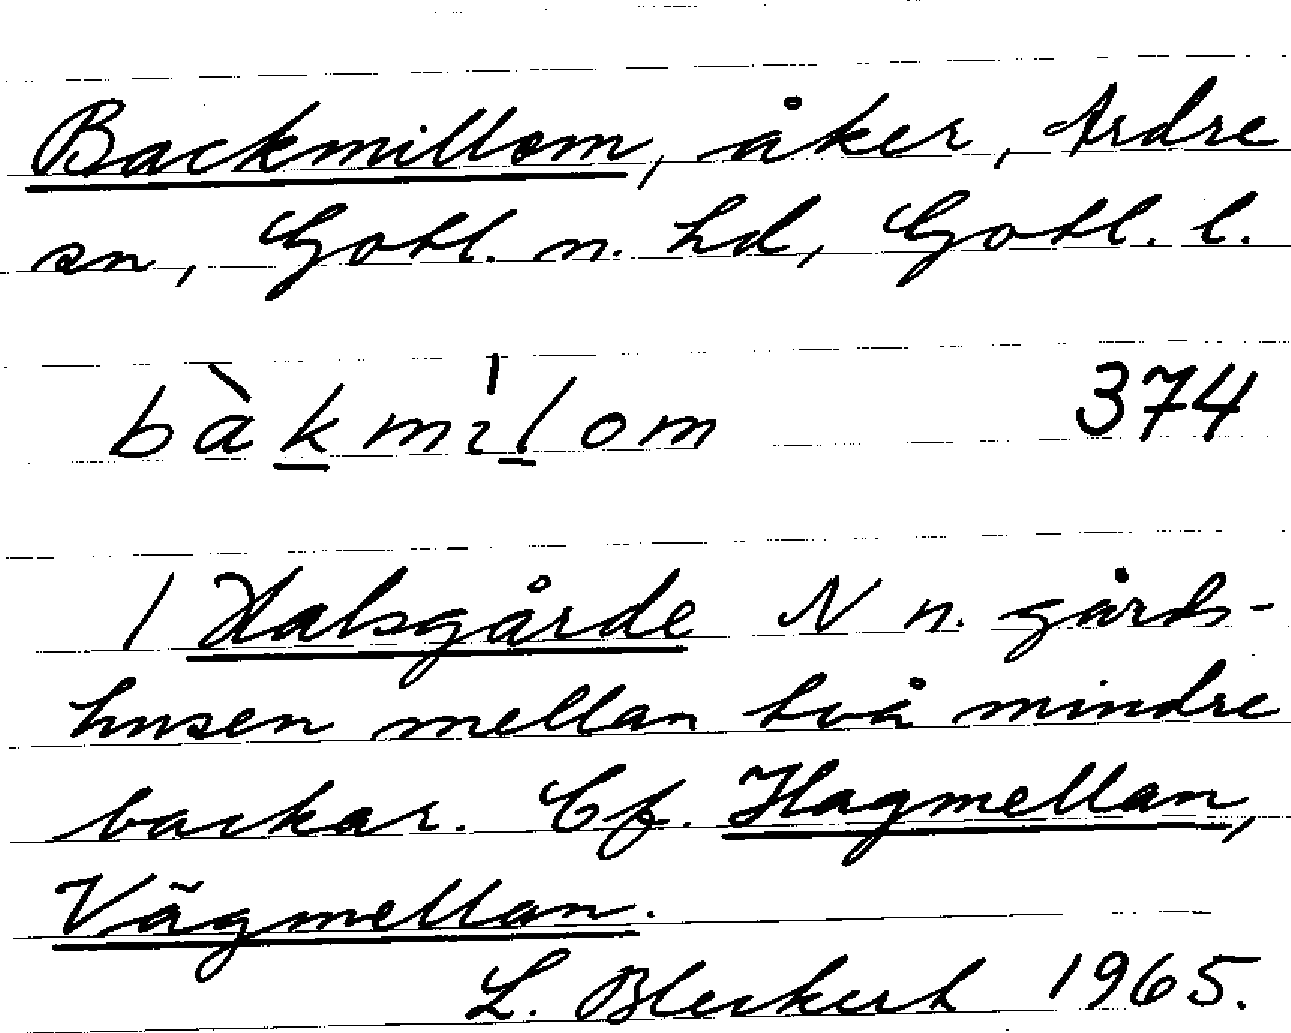 Backmillom, åker, Ardre
sn, Gotl. n. hd, Gotl. l.
bàkmìlom 374
1 Halsgårde N n. gårds-
husen mellan två mindre
backar. Cf. Hagmellan,
Vägmellan.
L. Bleckert 1965.